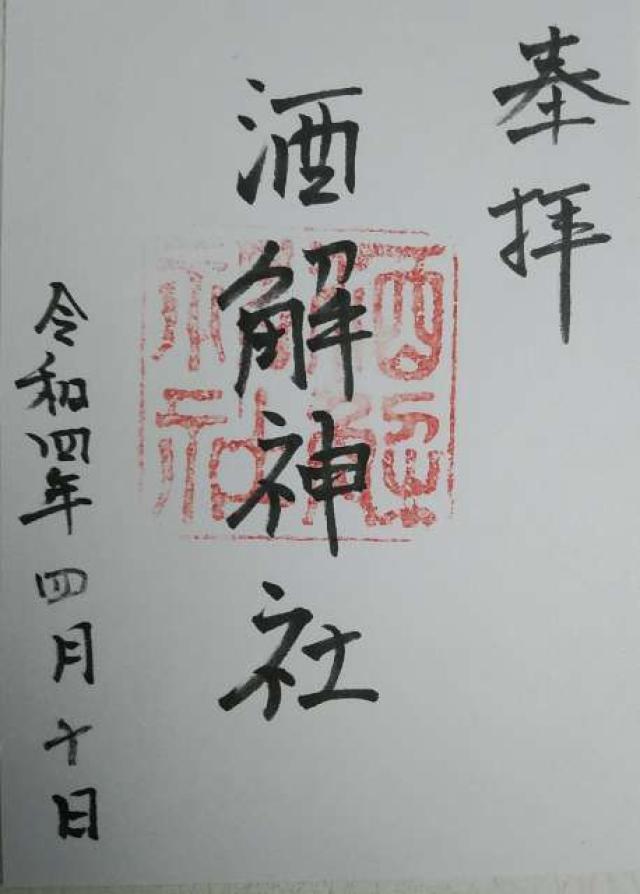 奉拝
酒解神社
令和四年四月十日